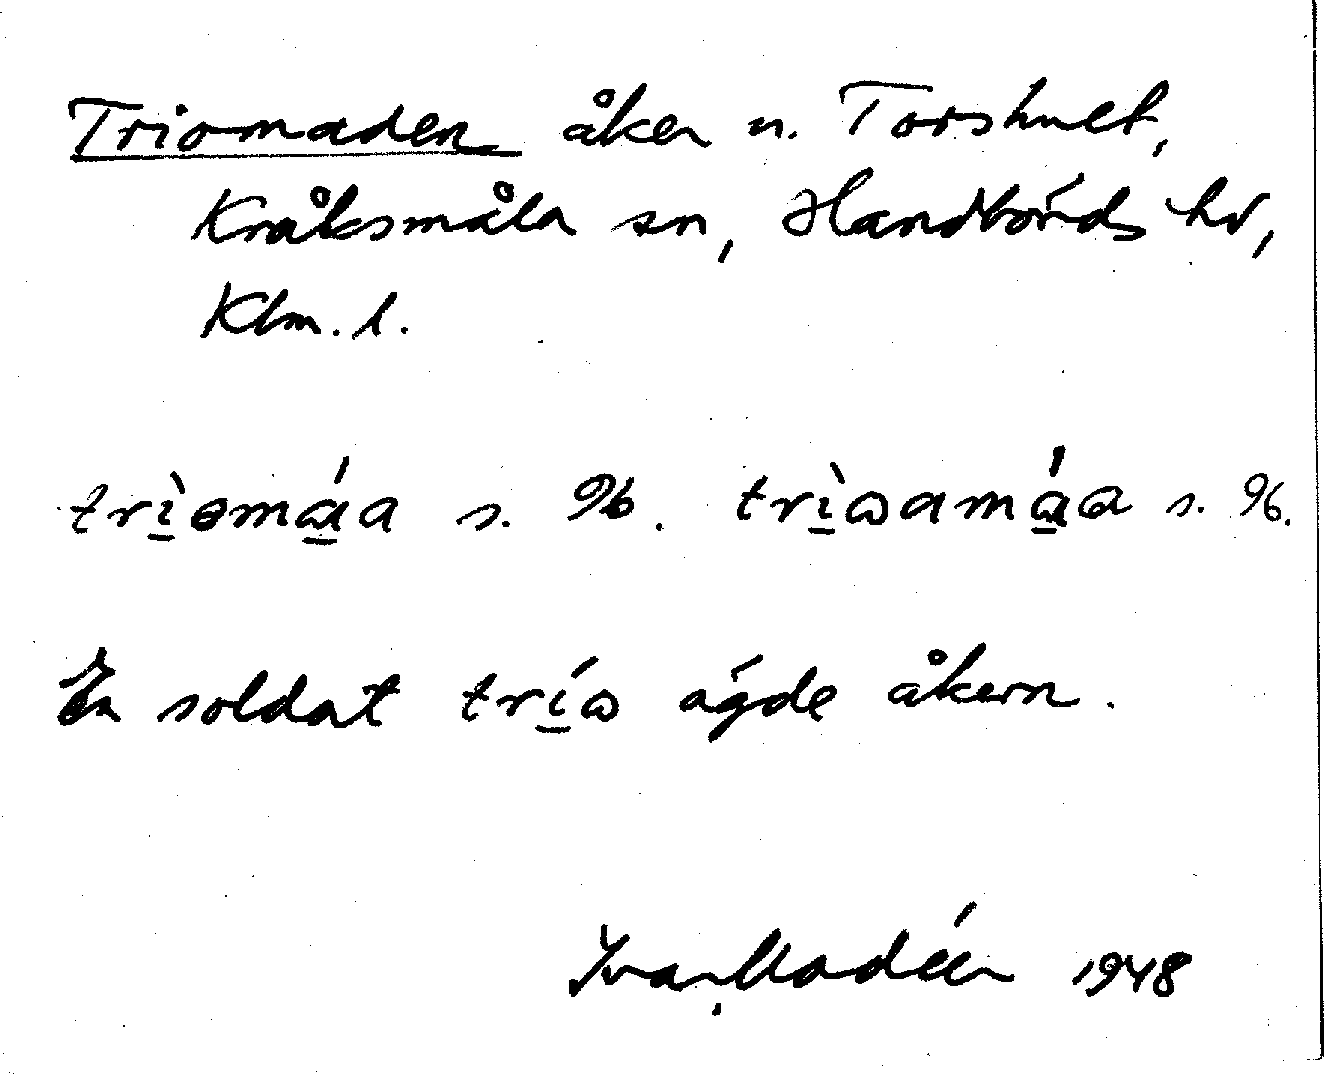 Triomaden åker n. Torshult,
Kråksmåla sn, Handbörds hd,
Klm. l.
trì̱ɵmá̱a s. 96. trì̱ωamá̱a s. 96.
En soldat trí̱ω ägde åkern.
Ivar Modéer 1948